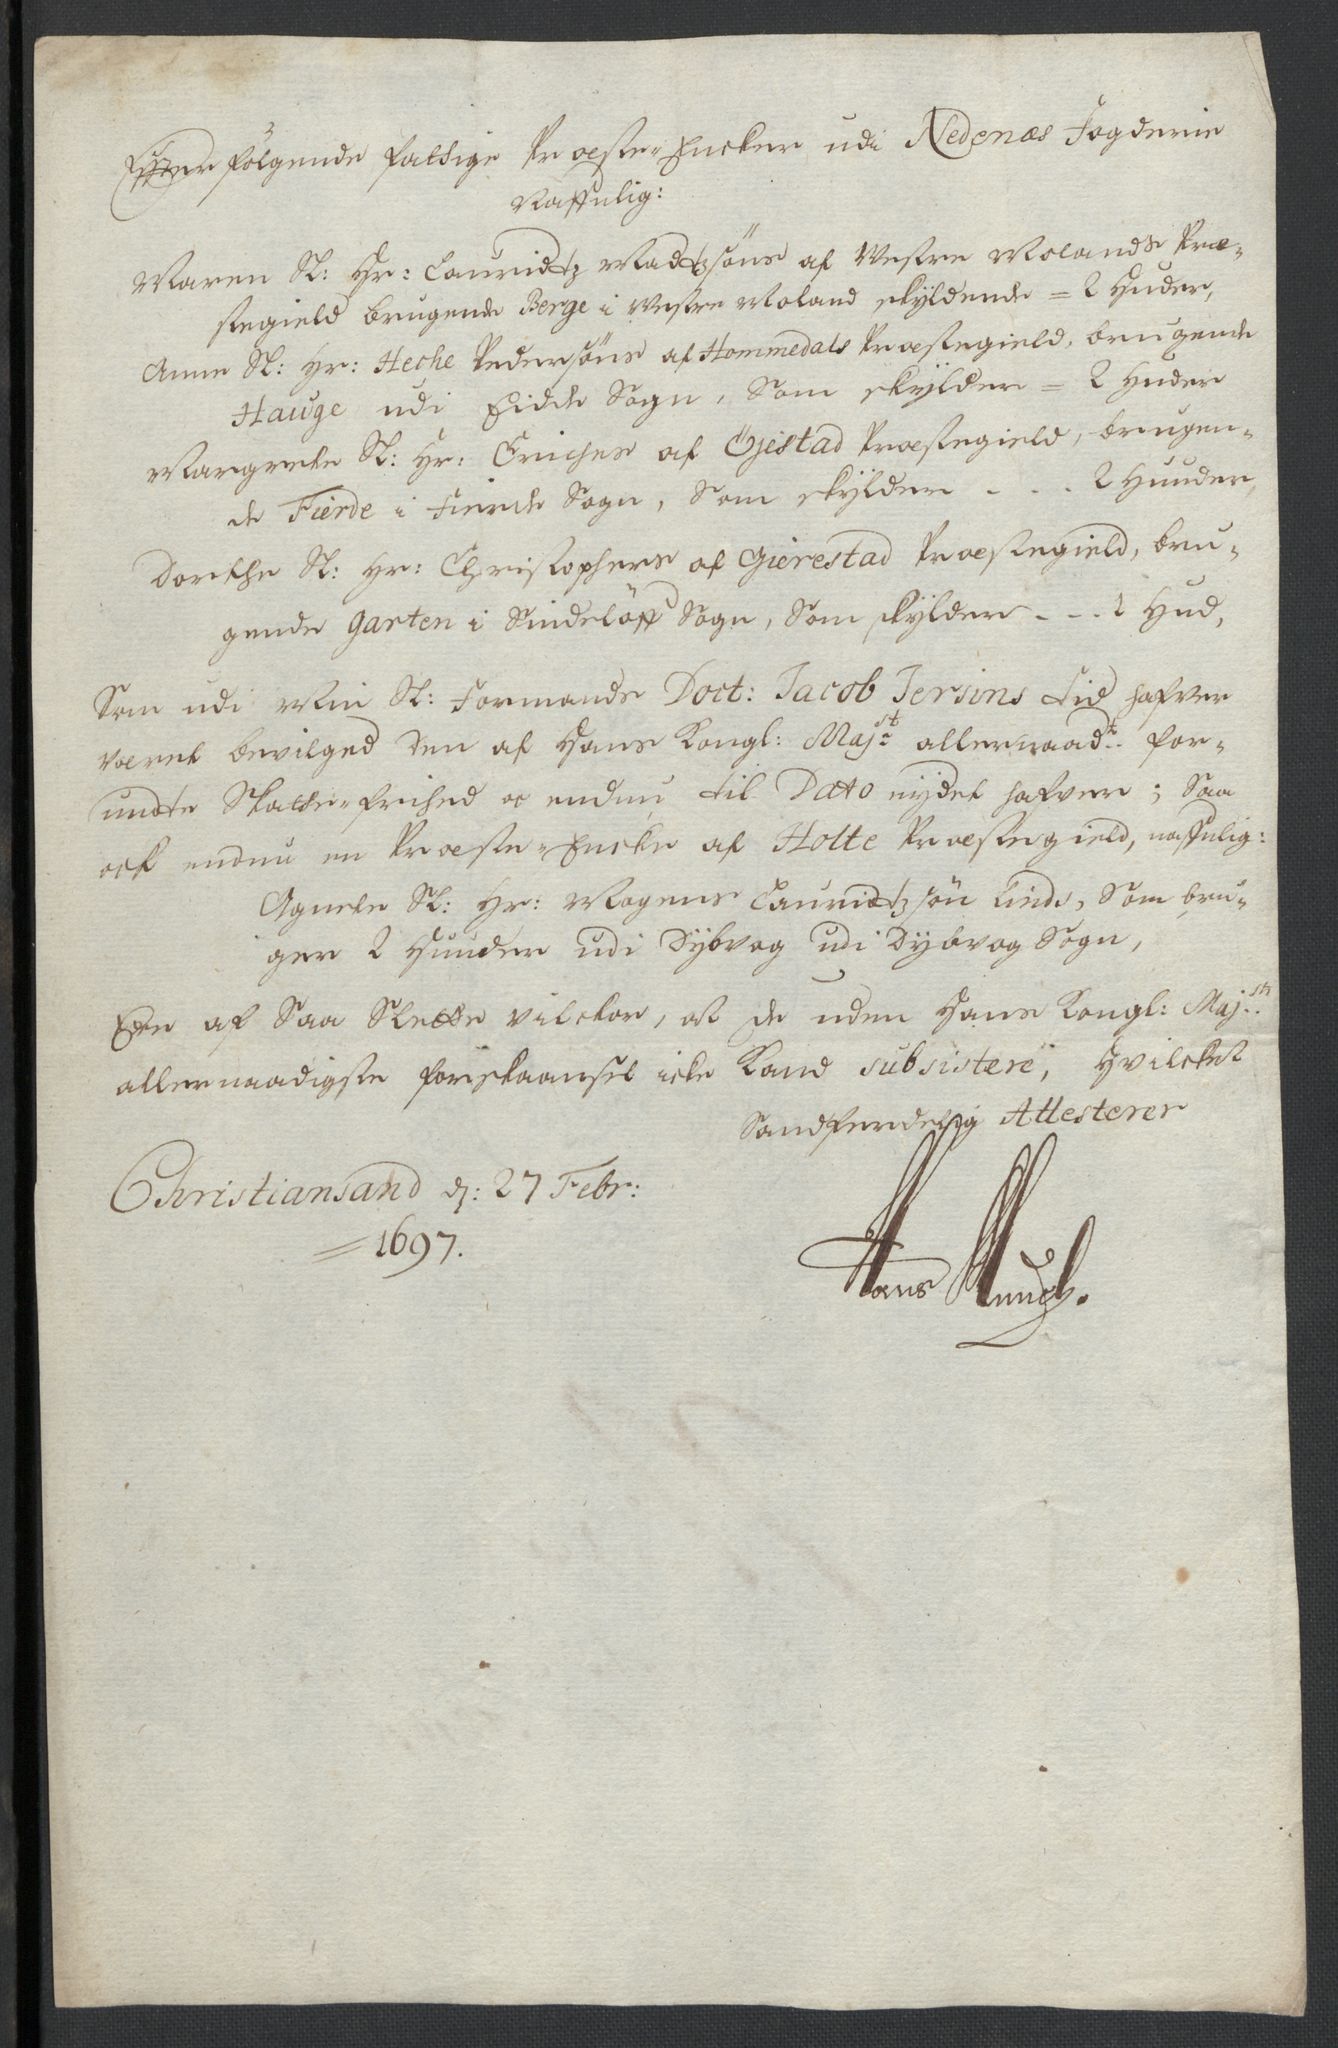 Effterfölgende fattige Præste-Encker udi Nedenæs Fogderie
Naffnlig:
Maren Sl: Hr: Lauridtz Madtzsöns af Westre Molands Præ-
stegield brugende Berge i Westre Moland skyldende = 2 Huder,
Anne Sl: Hr: Heche Pedersöns af Hommedals Præstegield, brugende
Hauge udi Eidde Sogn, Som skylder = 2 Huder
Margrete Sl: Hr: Erichs af Öjestad Præstegield, brugen-
de Fierde i Fierde Sogn, Som skylder - - - 2 Huuder,
Dorthe Sl: Hr: Christophers af Gierestad Præstegield, bru-
gende Garten i Sindelöffs Sogn, Som skylder - - - 1 Hud,
Som udi Min Sl: Formands Doct: Jacob Jersins tid hafver
været bevilged den af Hans Kongl: Maj:st allernaad:t for-
undte Skatte-frihed oc endnu til Dato nydet hafver; Saa
ock endnu en Præste-Encke af Holte Præstegield, naffnlig:
Agnete Sl: Hr: Mogens Lauridtzsön Linds, Som bru-
ger 2 Huuder udi Dybvog udi Dybvog Sogn,
Ere af Saa Slette vilckor, at de uden Hans Kongl: Maj:sts
allernaadigste forskaansel icke Kand subsistere, Hvilcket
Sandferdelig Attesterer
Christiansand d: 27 Febr:
= 1697.
Hans Munch.